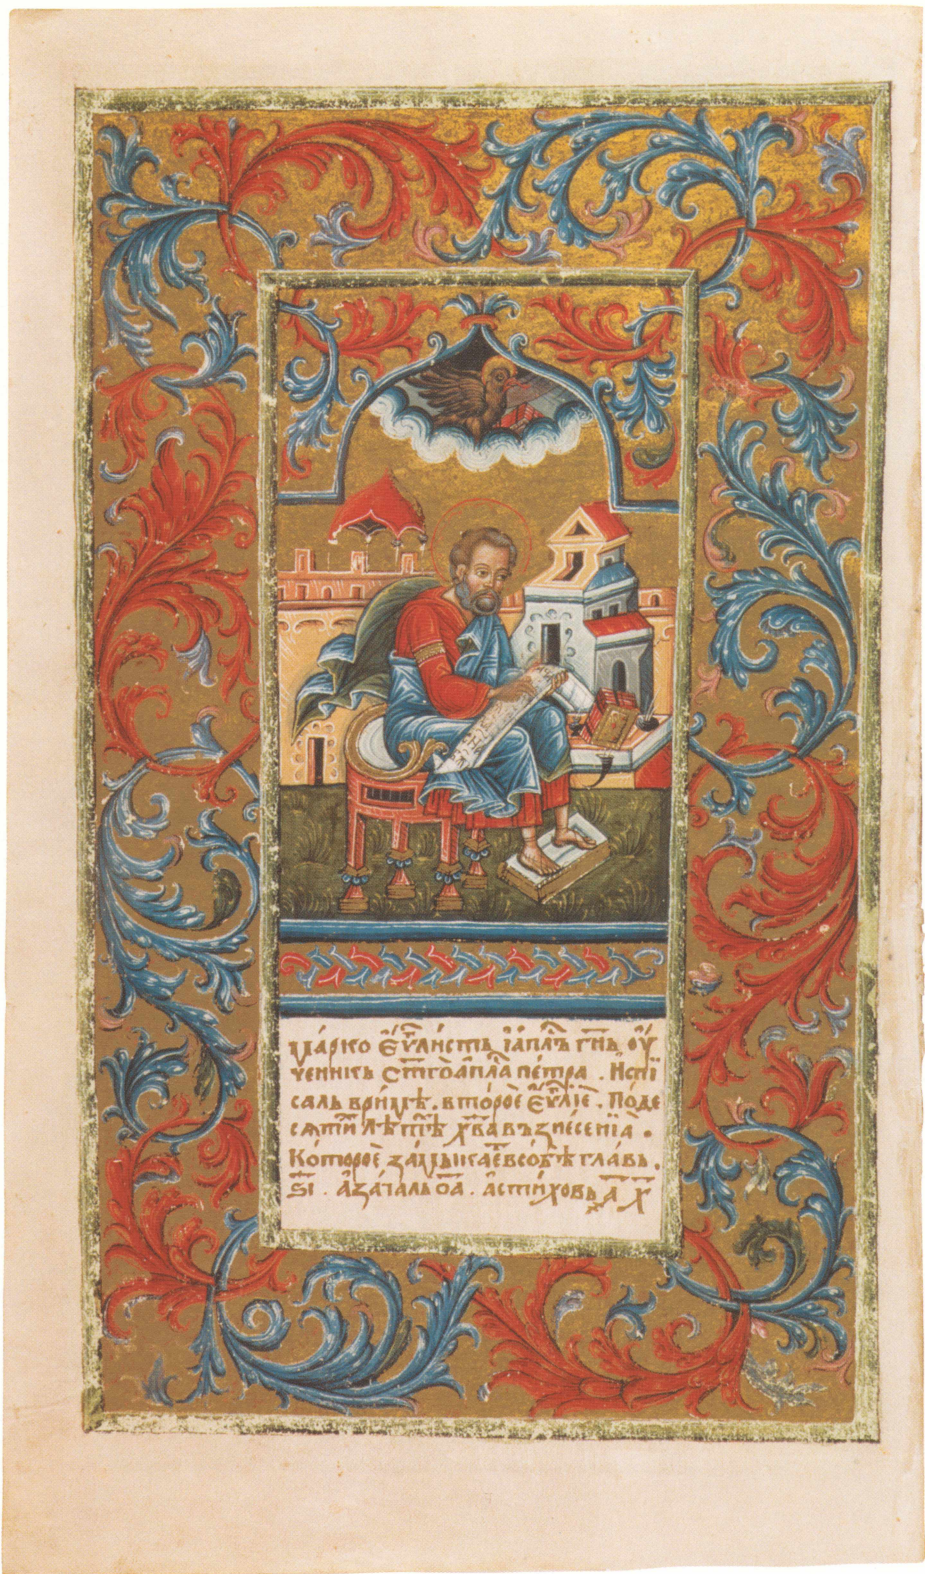 Марко еѵ҃листъ і҆апⷭ҇лъ гн҃ь оу҆
ченникъ ст҃го а҆пⷭ҇ла петра . И҆спи
салъври́мѣ . второе еѵ҃лїе . По де
сѧти лѣтѣ хв҃а възнесенїа .
Которое замыкает всобѣ главъ .
ѕ҃і . а҆ зачалъ о҃а . а҆ стиховъ ҂а х҃